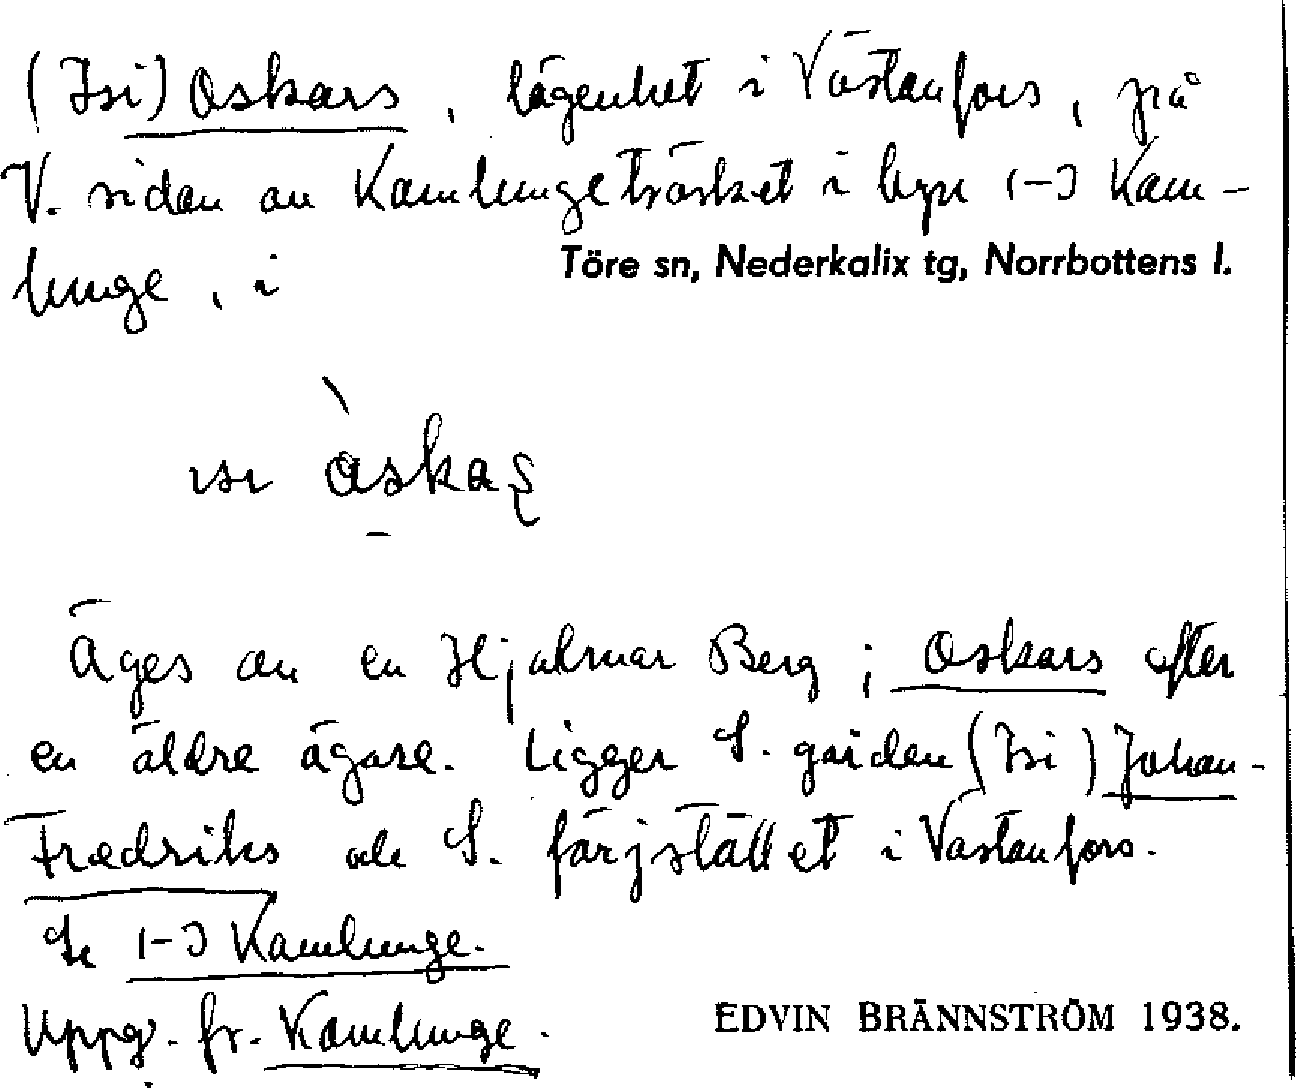 (Isi) Oskars, lägenhet i Västanfors, på
V. sidan av Kamlungeträsket i byn 1-3 Kam-
lunge, i Töre sn, Nederkalix tg, Norrbottens l.
Äges av en Hjalmar Berg; Oskars efter
en äldre ägare. Ligger S. gården (Isi) Johan-
Fredriks och S. färjstället i Västanfors.
Se 1-3 Kamlunge.
Uppg. fr. Kamlunge.
EDVIN BRÄNNSTRÖM 1938.